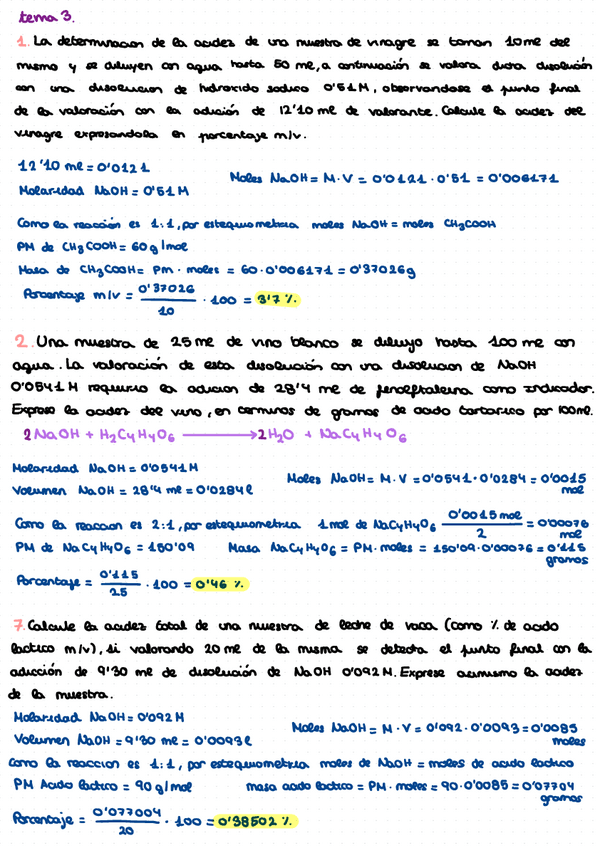 tema 3.
1. La determinacion de la acidez de una muestra de vinagre se toman 10 ml del
mismo y se diluyen con agua hasta 50 ml, a continuación se valora dicha disolución
con una disolucion de hidroxido sodico 0'51 M, observandose el punto final
de la valoración con la adición de 12'10 ml de valorante. Calcule la acidez del
vinagre expresandola en porcentaje m/v.
12'10 ml = 0'0121
Moles NaOH = M · V = 0'0121 · 0'51 = 0'006171
Molaridad NaOH = 0'51 M
Como la reacción es 1:1, por estequiometria moles NaOH = moles CH3COOH
PM de CH3COOH = 60 g/mol
Masa de CH3COOH = Pm · moles = 60 · 0'006171 = 0'37026 g
Porcentaje m/v = 0'37026 / 10 · 100 = 3'7 %
2. Una muestra de 25 ml de vino blanco se diluyo hasta 100 ml con
agua. La valoración de esta disolución con una disolucion de NaOH
0'0541 M requirio la adicion de 28'4 ml de fenolftaleina como indicador.
Exprese la acidez del vino, en terminos de gramos de acido tartarico por 100 ml.
2 NaOH + H2C4H4O6 → 2 H2O + NaC4H4O6
Molaridad NaOH = 0'0541 M
Moles NaOH = M · V = 0'0541 · 0'0284 = 0'0015 mol
Volumen NaOH = 28'4 ml = 0'0284 l
Como la reaccion es 2:1, por estequiometria 1 mol de NaC4H4O6 0'0015 mol / 2 = 0'00076 mol
PM de NaC4H4O6 = 150'09 Masa NaC4H4O6 = PM · moles = 150'09 · 0'00076 = 0'115 gramos
Porcentaje = 0'115 / 25 · 100 = 0'46 %
7. Calcule la acidez total de una muestra de leche de vaca (como % de acido
lactico m/v), si valorando 20 ml de la misma se detecta el punto final con la
adicción de 9'30 ml de disolución de NaOH 0'092 M. Exprese asimismo la acidez
de la muestra.
Molaridad NaOH = 0'092 M
Moles NaOH = M · V = 0'092 · 0'0093 = 0'0085 moles
Volumen NaOH = 9'30 ml = 0'0093 l
Como la reaccion es 1:1, por estequiometria moles de NaOH = moles de acido lactico
PM Acido lactico = 90 g/mol masa acido lactico = PM · moles = 90 · 0'0085 = 0'07704 gramos
Porcentaje = 0'077004 / 20 · 100 = 0'38502 %